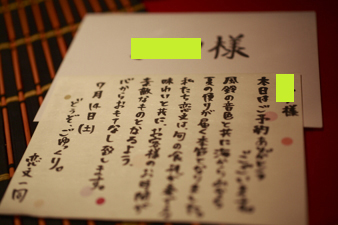 様
様
本日はご予約ありがとうございます。
風鈴の音色と共に海からふく
夏の便りが届く季節となりました
私たち恋文は、旬の食材が奏でる
味わいと共に、お客様のお時間が
素敵なものとなるよう、
心からおもてなし致します。
どうぞごゆっくり。
7月14日(土)
恋文一同